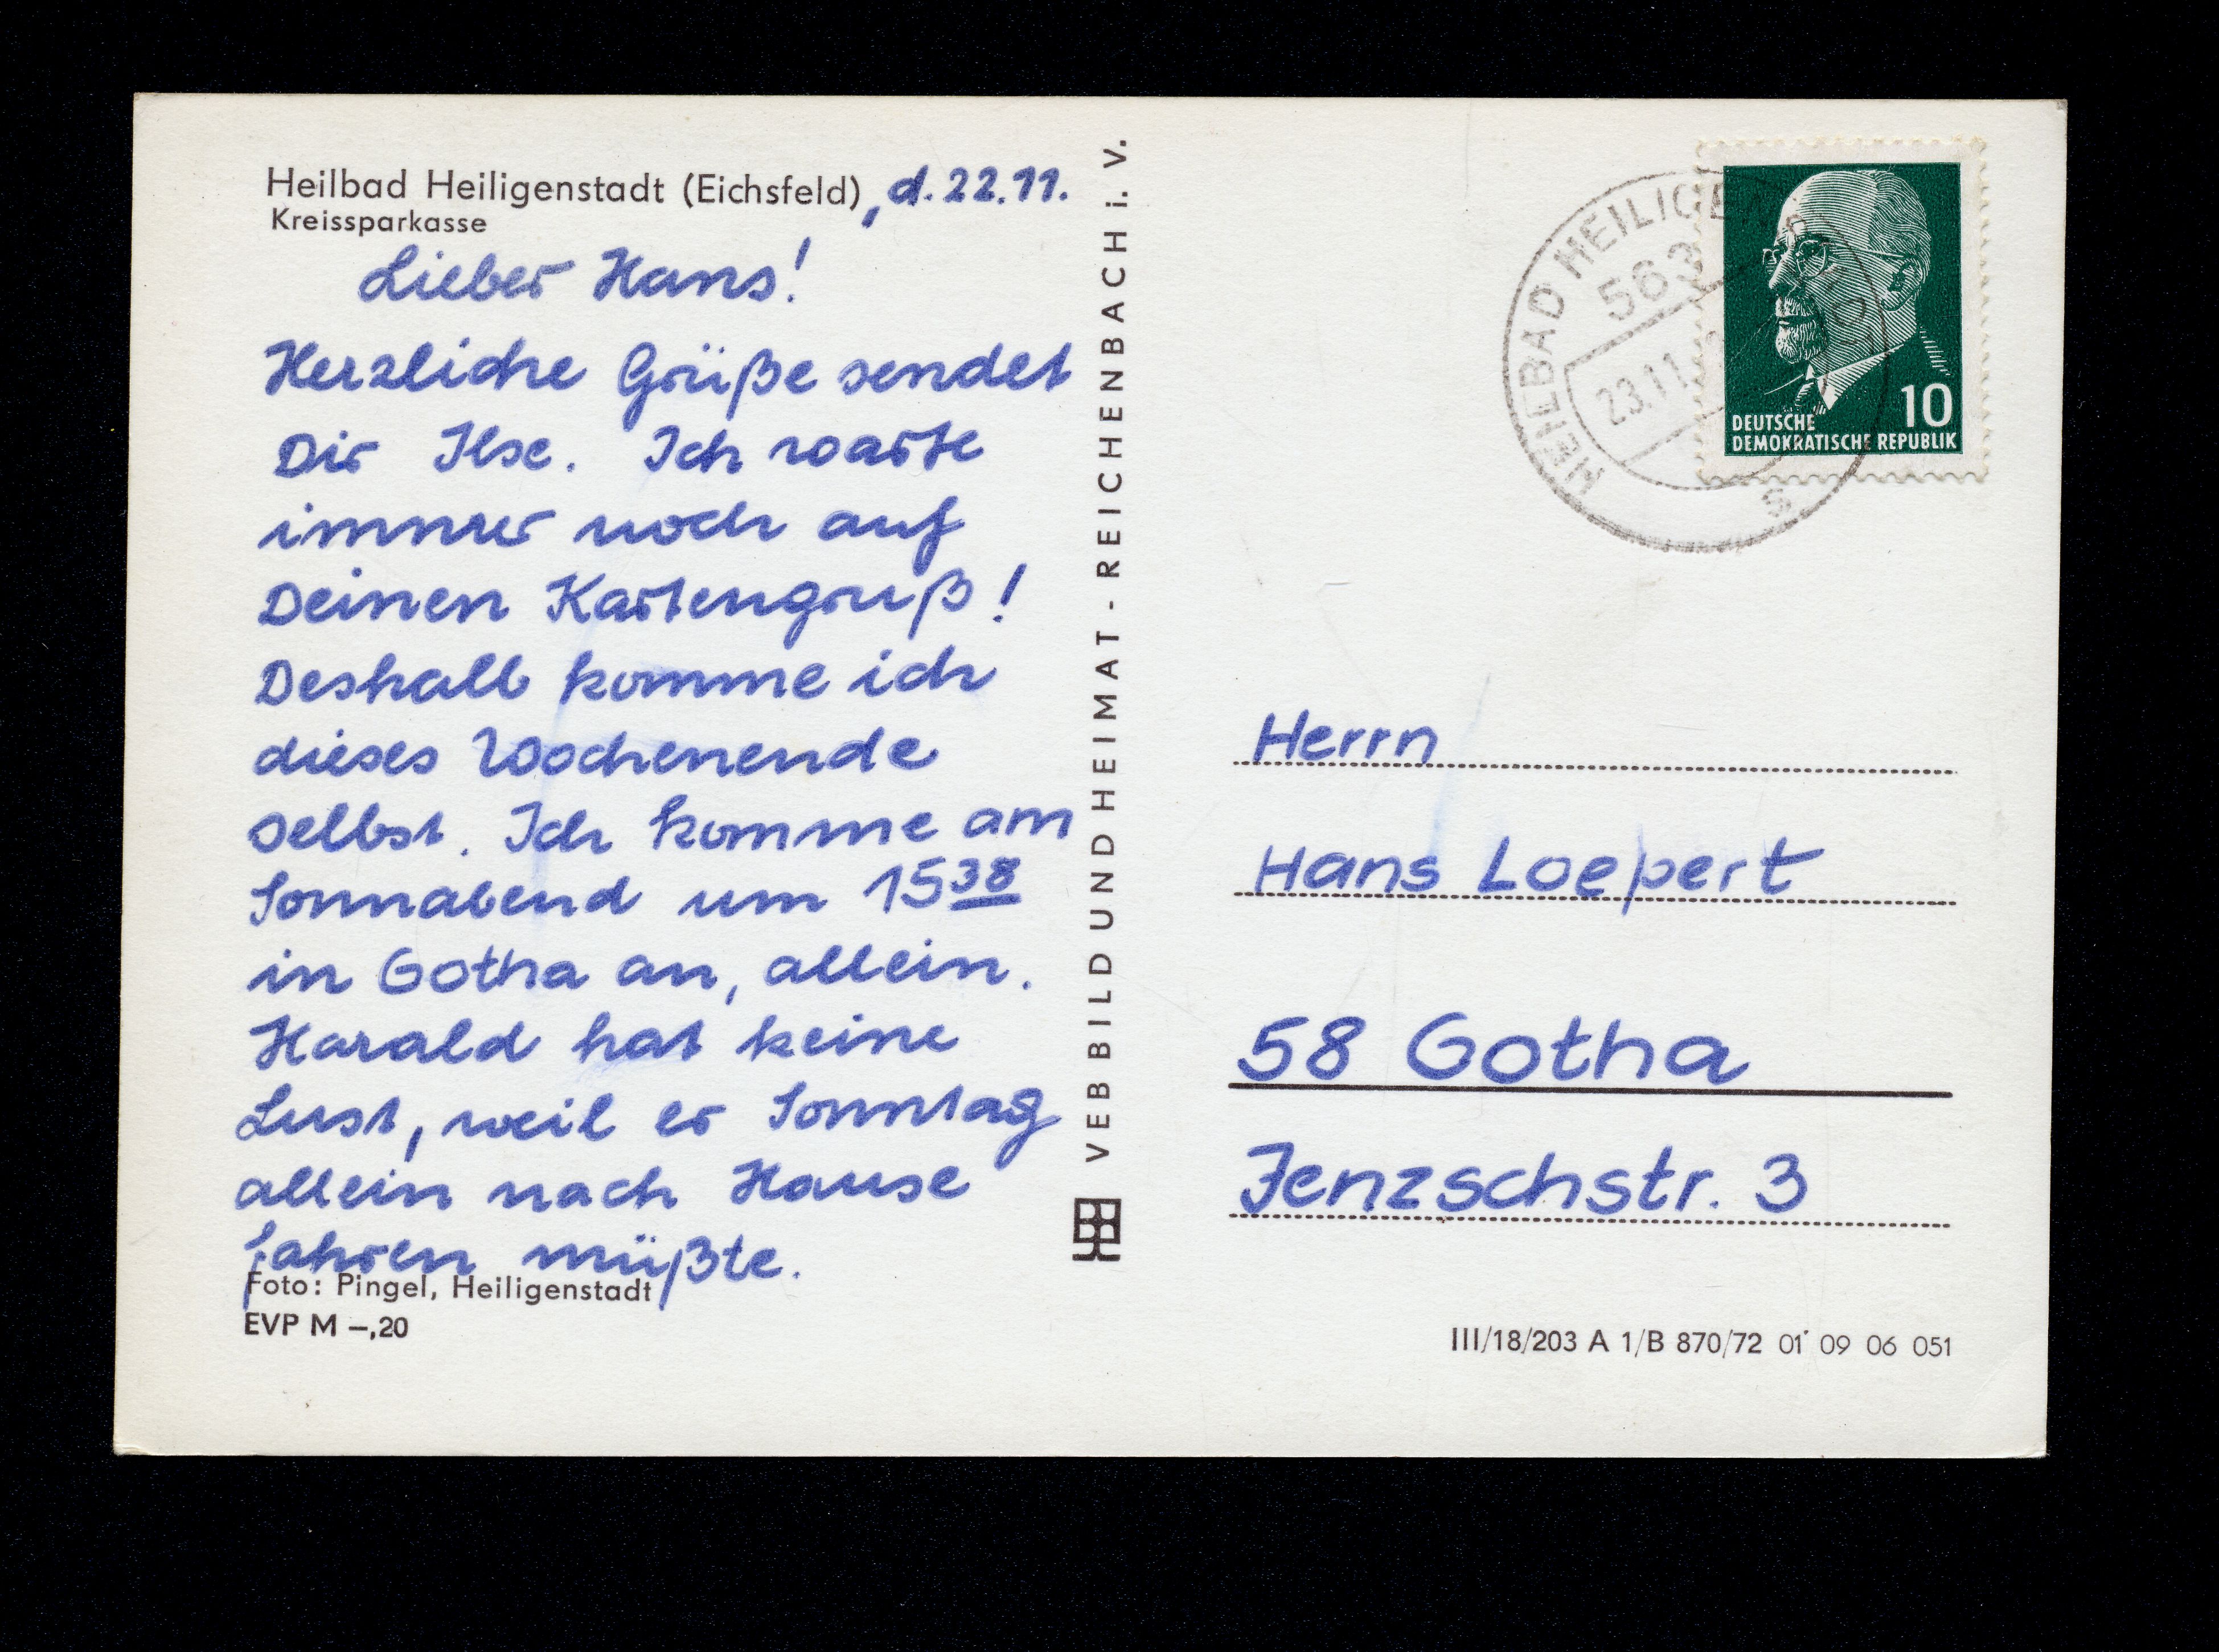 Heilbad Heiligenstadt (Eichsfeld), d. 22.11.
Kreissparkasse
Lieber Hans!
Herzliche Grüße sendet
Dir Ilse. Ich warte
immer noch auf
Deinen Kartengruß!
Deshalb komme ich
dieses Wochenende
selbst. Ich komme am
Sonnabend um 15 38
in Gotha an, allein.
Harald hat keine
Lust, weil er Sonntag
allein nach Hause
fahren müßte.
Foto: Pingel, Heiligenstadt
EVP M –,20
VEB BILD UND HEIMAT - REICHENBACH i. V.
HEILBAD HEILIGEN
563
23.11.
s
10
DEUTSCHE
DEMOKRATISCHE REPUBLIK
Herrn
Hans Loepert
58 Gotha
Jenzschstr. 3
III/18/203 A 1/B 870/72 01 09 06 051